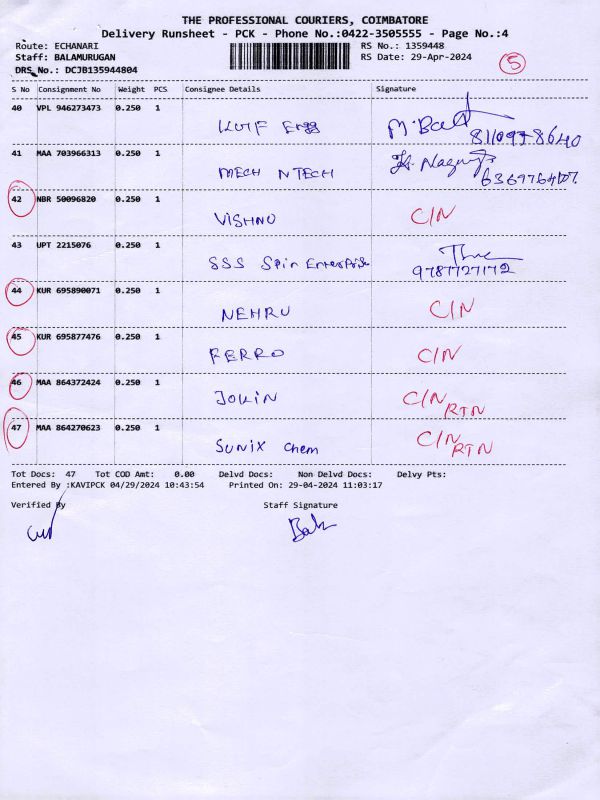 THE PROFESSIONAL COURIERS, COIMBATORE
Delivery Runsheet - PCK - Phone No.:0422-3505555 - Page No.:4
Route: ECHANARI RS No.: 1359448
Staff: BALAMURUGAN RS Date: 29-Apr-2024
DRS No.: DCJB135944804
5
S No Consignment No Weight PCS Consignee Details Signature
40 VPL 946273473 0.250 1
Engg
41 MAA 703966313 0.250 1
MECH NTECH
42 NBR 50096820 0.250 1
VISHNU C/N
43 UPT 2215076 0.250 1
SSS Spin Enterprise
9787727172
44 KUR 695890071 0.250 1
NEHRU C/N
45 KUR 695877476 0.250 1
FERRO C/N
46 MAA 864372424 0.250 1
JOLIN C/N RTN
47 MAA 864270623 0.250 1
SUNIX Chem C/N RTN
Tot Docs: 47 Tot COD Amt: 0.00 Delvd Docs: Non Delvd Docs: Delvy Pts:
Entered By :KAVIPCK 04/29/2024 10:43:54 Printed On: 29-04-2024 11:03:17
Verified By Staff Signature